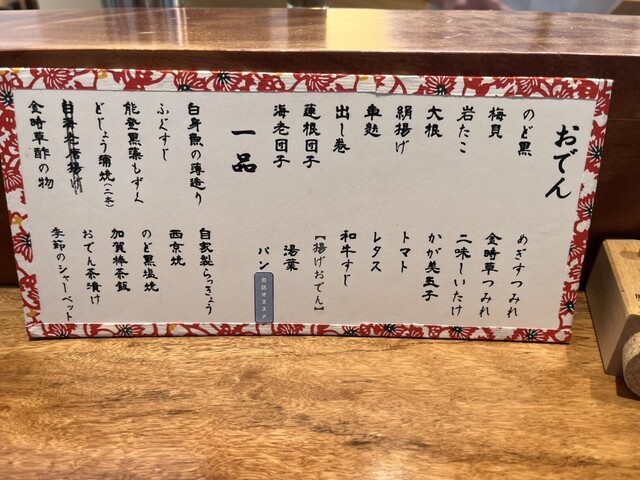 おでん
のど黒
梅貝
岩たこ
大根
絹揚げ
車麩
出し巻
蓮根団子
海老団子
めぎすつみれ
金時草つみれ
二味しいたけ
かが美玉子
トマト
レタス
和牛すじ
【揚げおでん】
湯葉
パン
当店オススメ
一品
白身魚の薄造り
ふぐすじ
能登黒藻もずく
どじょう蒲焼(二本)
金時草酢の物
自家製らっきょう
西京焼
のど黒塩焼
加賀棒茶飯
おでん茶漬け
季節のシャーベット